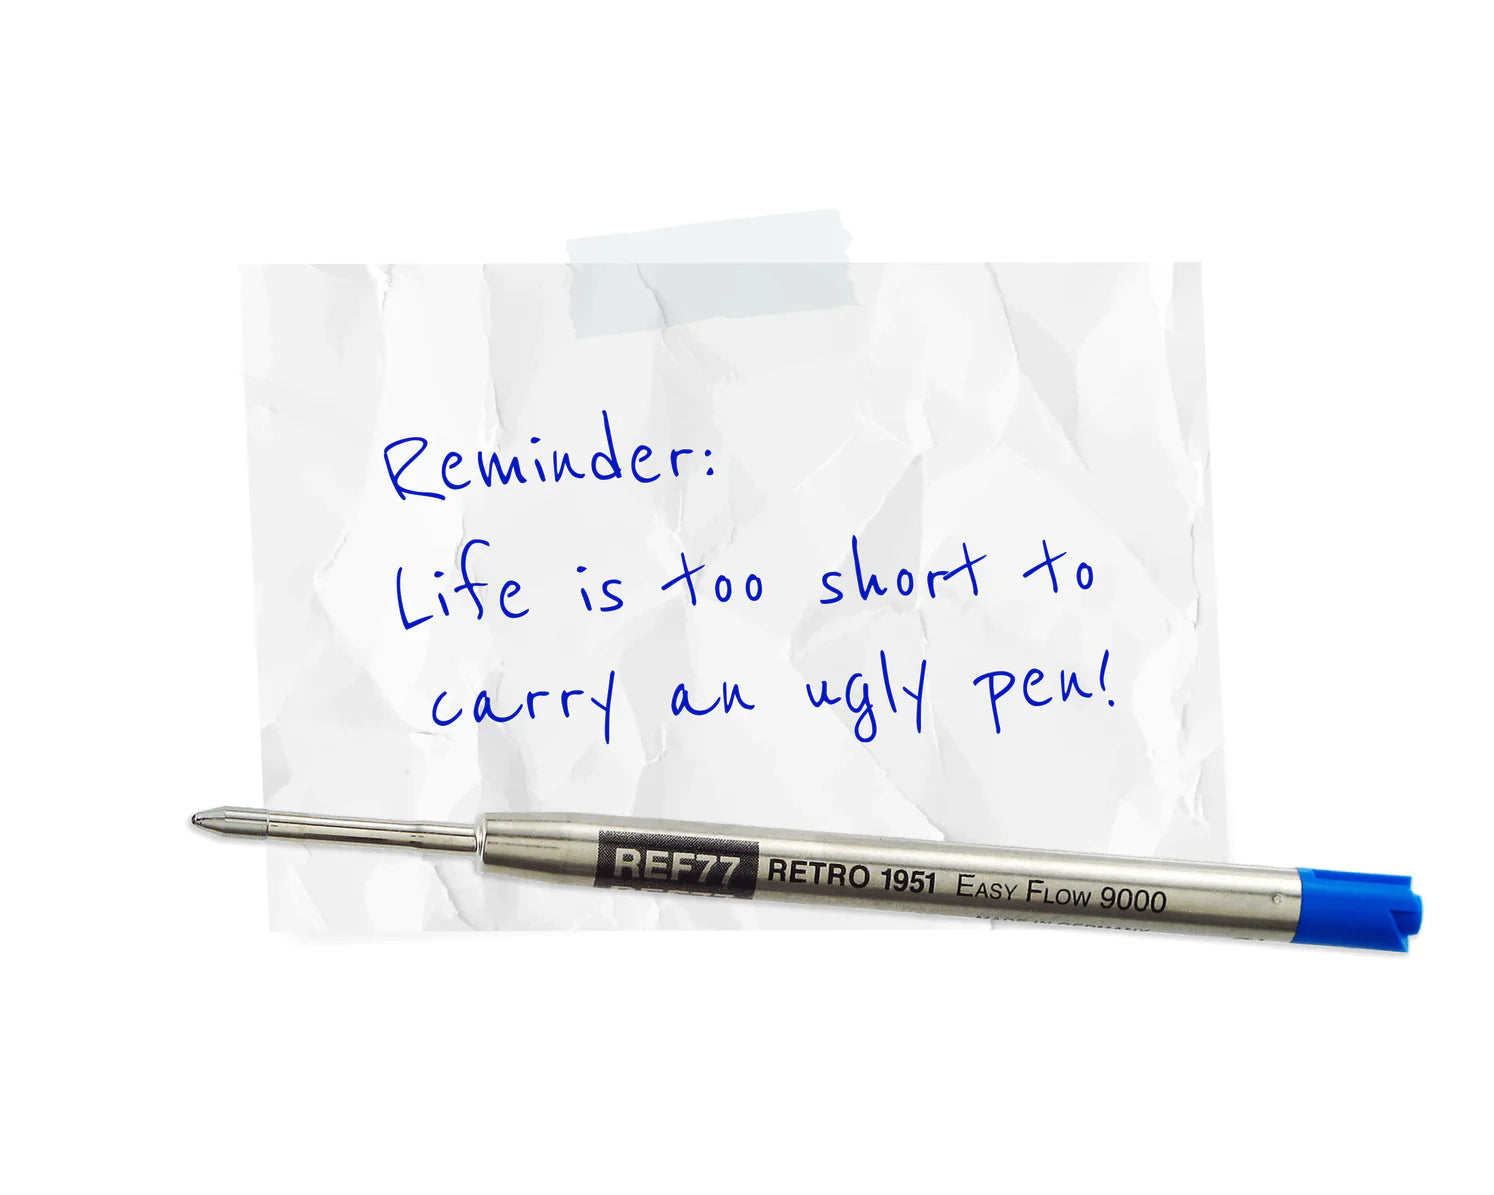 Reminder:
Life is too short to
carry an ugly pen!
REF77 RETRO 1951 EASY FLOW 9000
MADE IN GERMANY